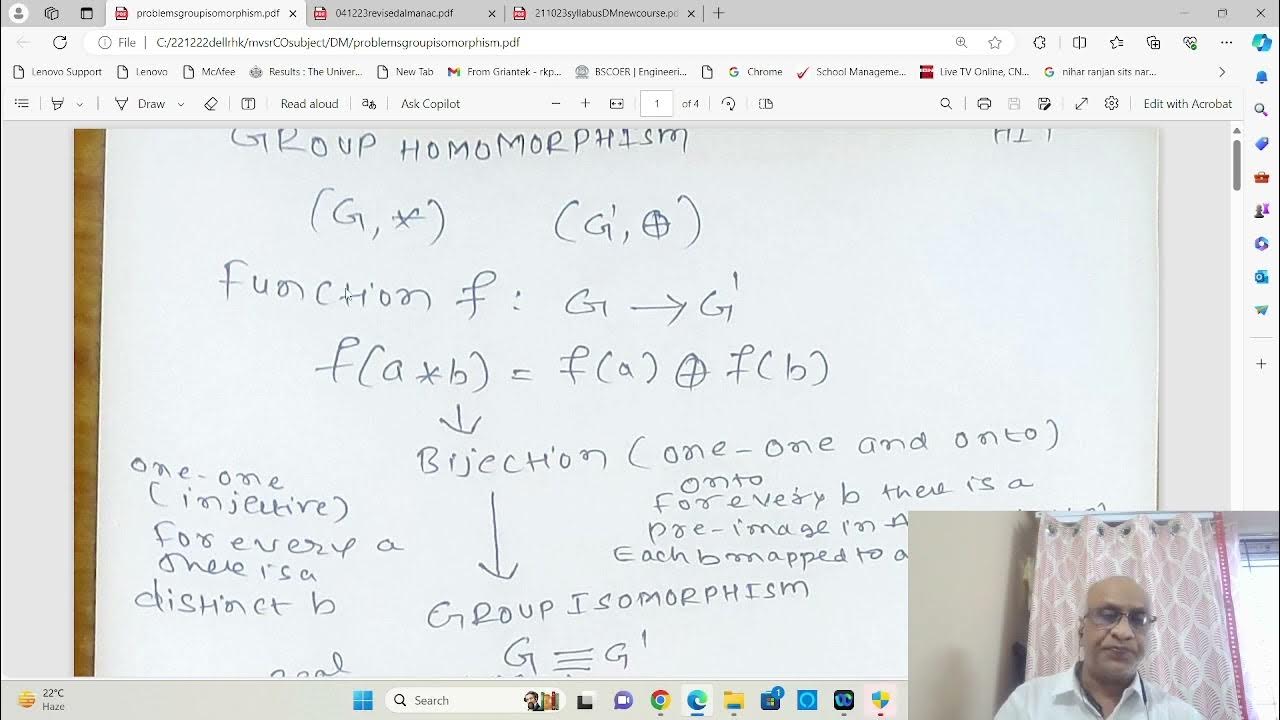 problemsgroupisomorphism.pdf
041223revisedalmanac.pdf
211023syllabusDMnewcourse.pd
File
C:/221222dellrhk/mvsrCOsubject/DM/problemsgroupisomorphism.pdf
Lenovo Support
Lenovo
McA
Results : The Univer...
New Tab
From Griantek - rkp...
BSCOER | Engineeri...
Chrome
School Manageme...
Live TV Online, CN...
nihar ranjan sits nar...
Draw
Read aloud
Ask Copilot
1 of 4
Edit with Acrobat
GROUP HOMOMORPHISM
(G, *) (G', ⊕)
Function f : G → G'
f(a*b) = f(a) ⊕ f(b)
↓
Bijection (one-one and onto)
one-one
(injective)
for every a
there is a
distinct b
onto
for every b there is a
pre-image in A
Each b mapped to a
GROUP ISOMORPHISM
G ≡ G'
22°C
Haze
Search